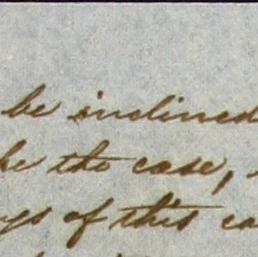 be inclined
be the case,
of this